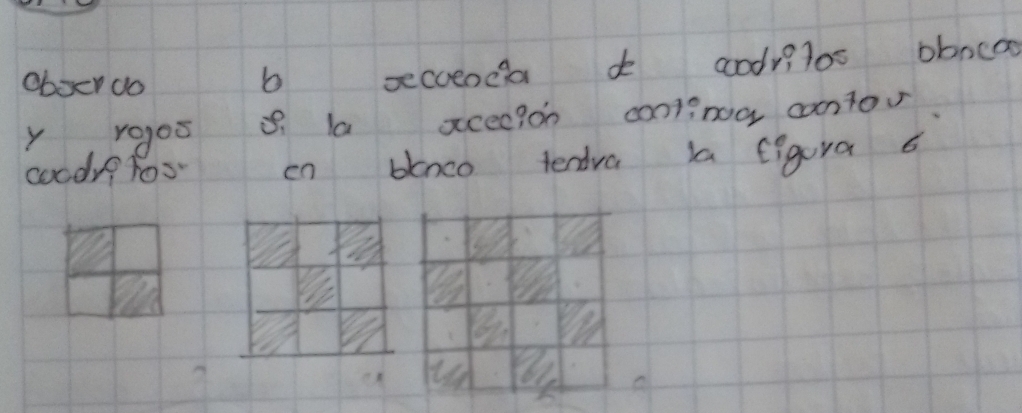 Observo b secuencia de cuadritos blancos
y rojos si la suceción continua cuantos
cuadritos en blanco tendra la figura 6